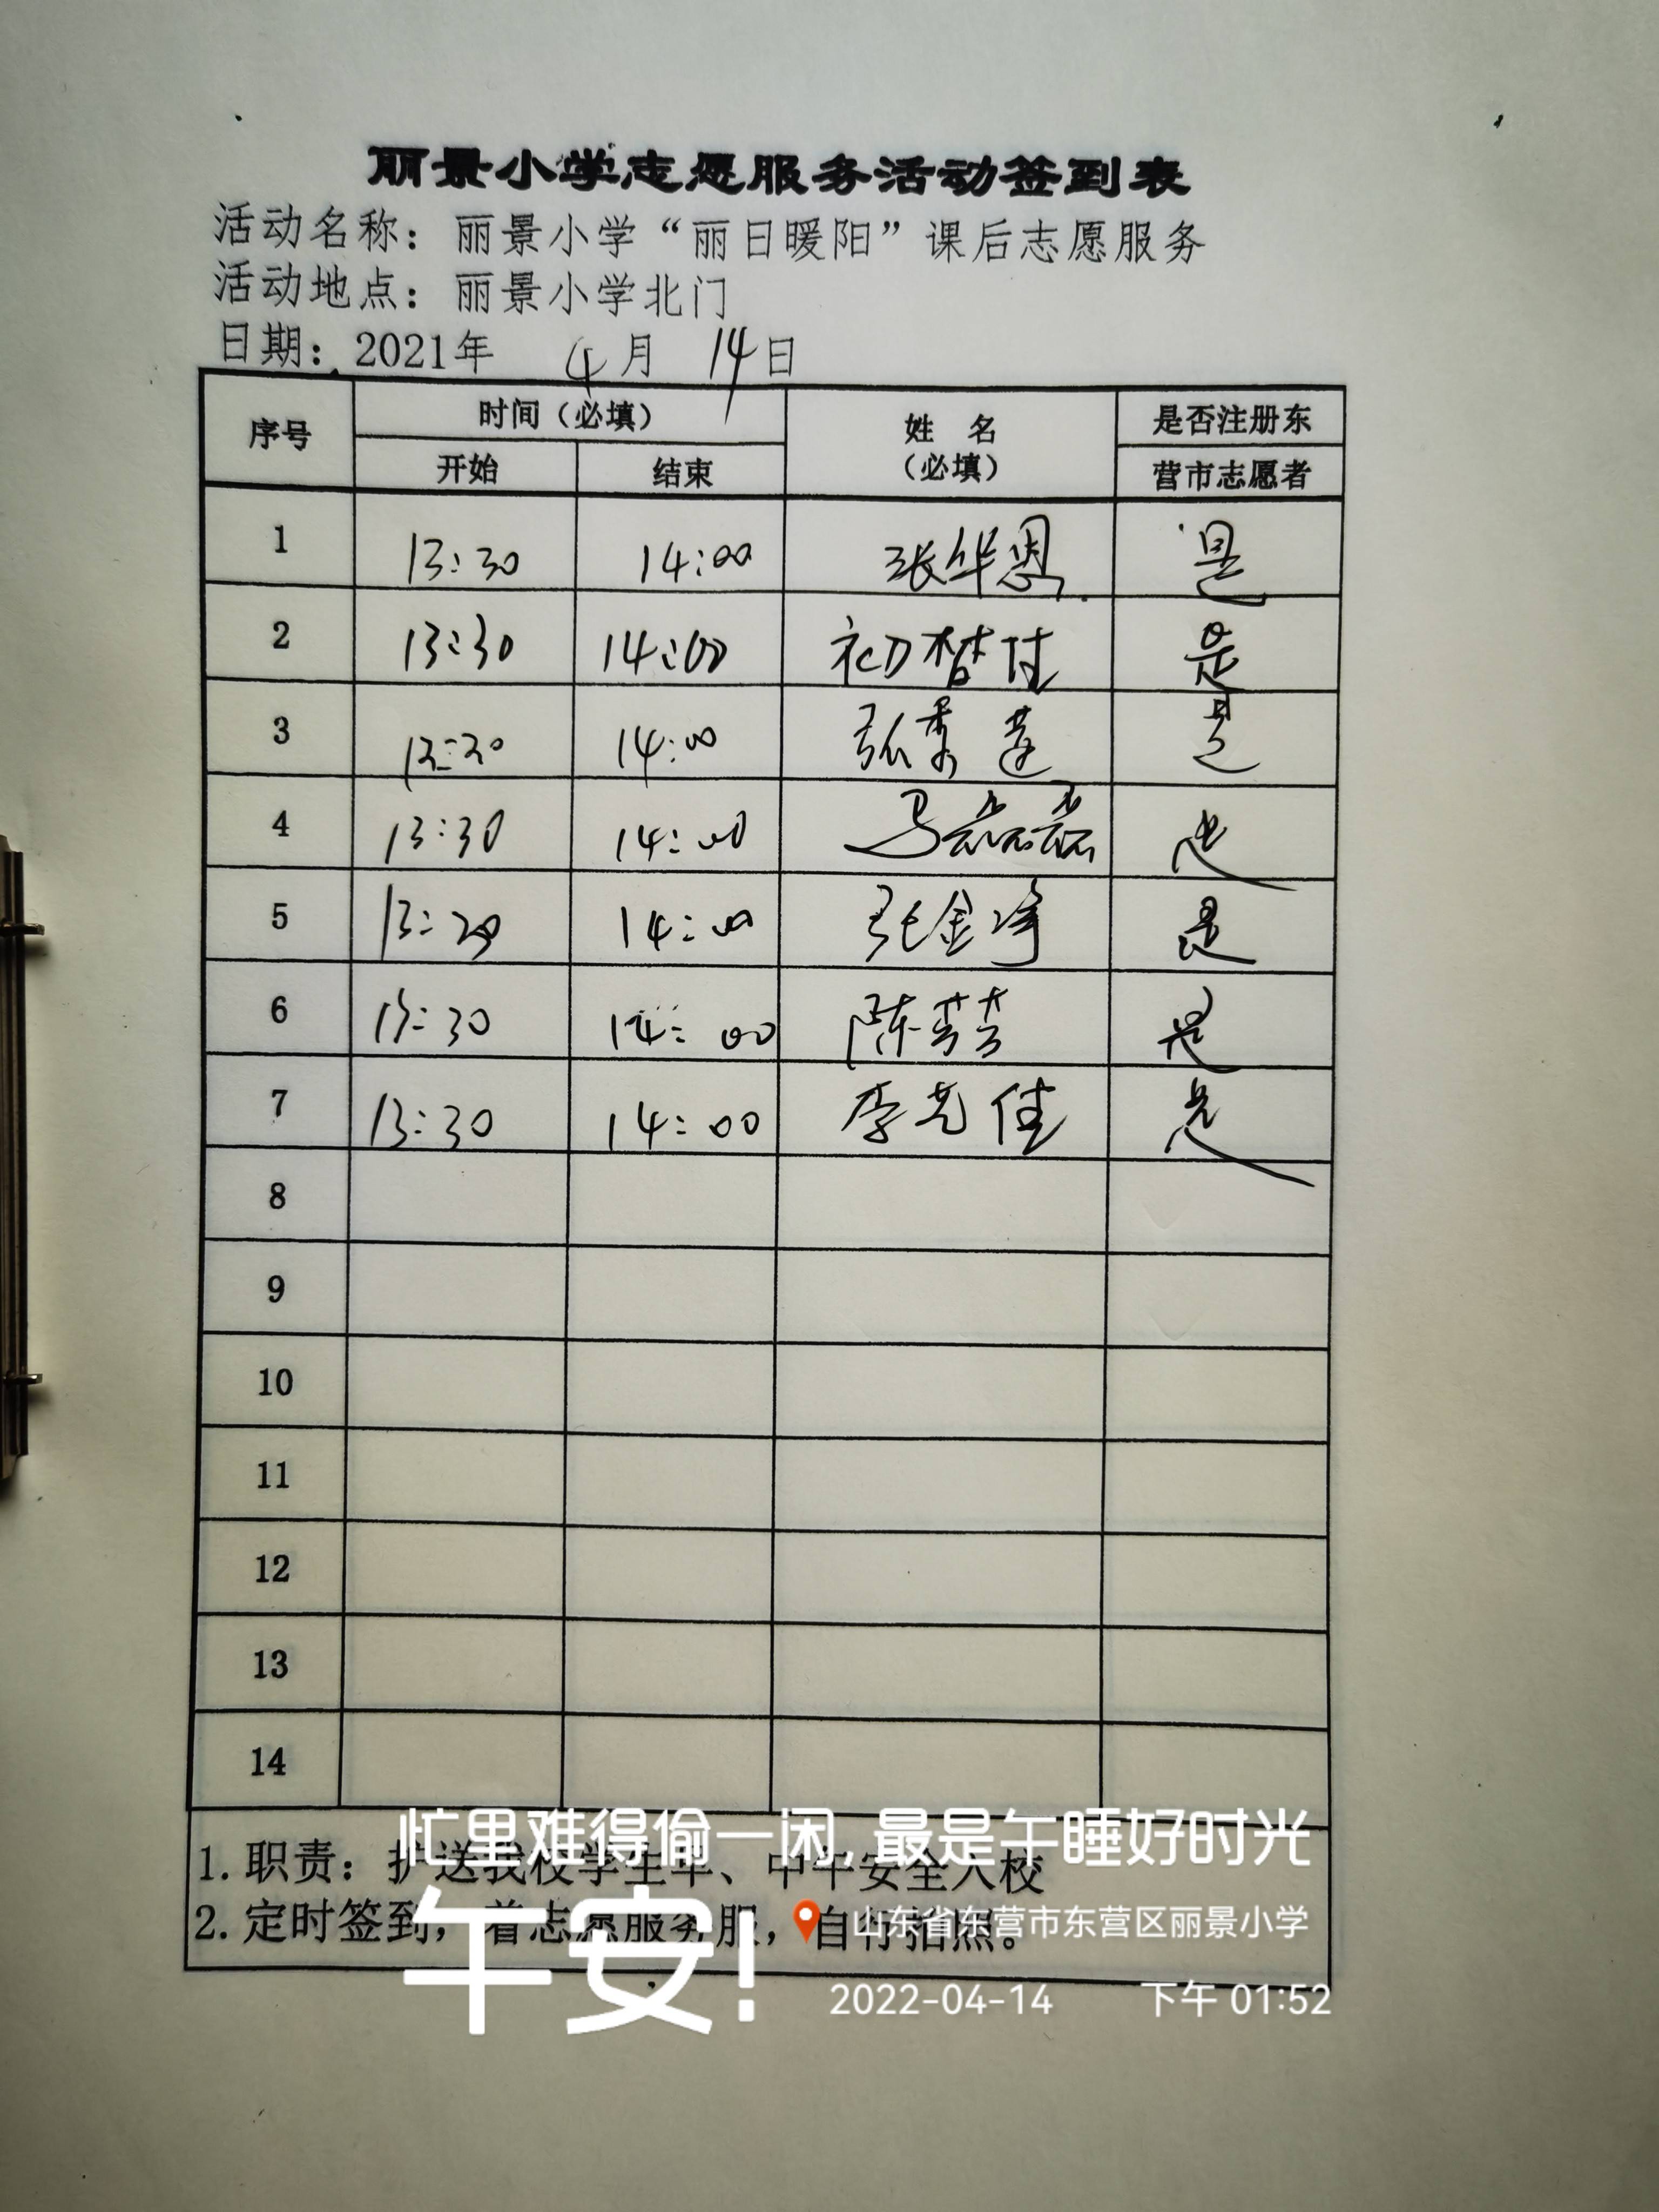 丽景小学志愿服务活动签到表
活动名称：丽景小学“丽日暖阳”课后志愿服务
活动地点：丽景小学北门
日期：2021年 4月 14日
序号 时间（必填） 姓 名 是否注册东
开始 结束 （必填） 营市志愿者
1 13:30 14:00 张华恩 是
2 13:30 14:00 初 是
3 14:00 张 是
4 13:30 14:00 马磊磊 是
5 14:00 张金 是
6 13:30 14:00 陈芸芸 是
7 13:30 14:00 李 佳 是
8
9
10
11
12
13
14
忙里难得偷一闲，最是午睡好时光
1.职责：护送我校学生早、中午安全入校
2.定时签到，着志愿服务服，自行拍照。
午安！
山东省东营市东营区丽景小学
2022-04-14 下午 01:52